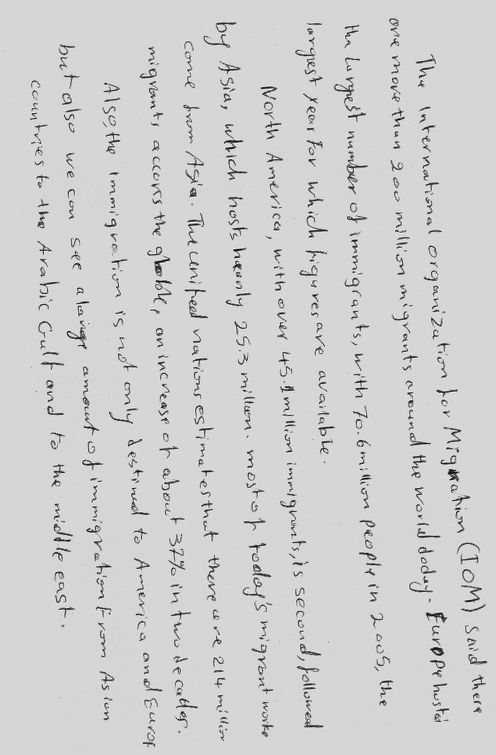 The International organization for Migration (IOM) said there
are more than 200 million migrants around the world today. Europe hosted
the largest number of immigrants, with 70.6 million people in 2005, the
largest year for which figures are available.
North America, with over 45.1 million immigrants, is second, followed
by Asia, which hosts nearly 25.3 million. most of today's migrant worke
come from Asia. The united nations estimates that there are 214 million
migrants accors the globle, an increase of about 37% in two decades.
Also, the immigration is not only destined to America and Europ
but also we can see a large amount of immigration from Asian
countries to the Arabic Gulf and to the middle east.